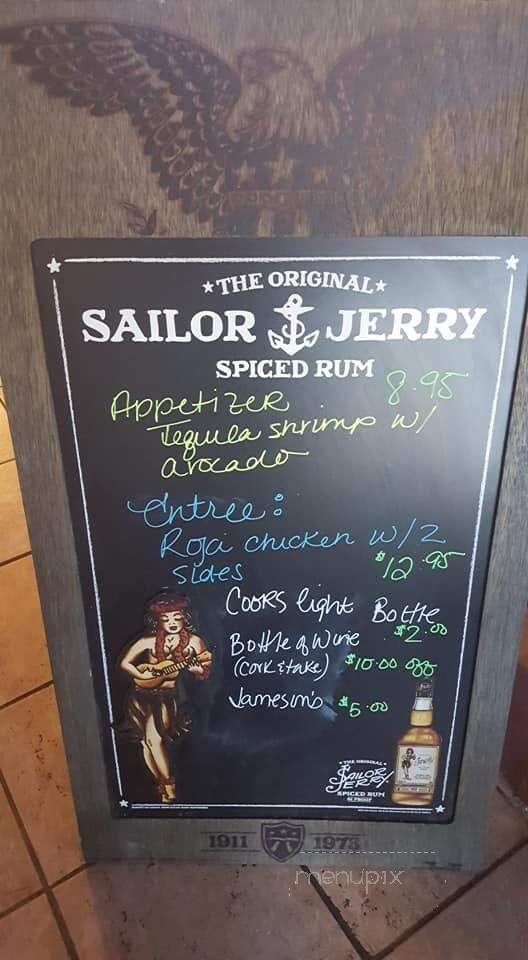 THE ORIGINAL
SAILOR JERRY
SPICED RUM
Appetizer 8.95
Tequila shrimp w/
avocado
Entree:
Roja chicken w/2
sides $12.95
Coors light Bottle
$2.00
Bottle of Wine
(Cork & take) $10.00 off
Jameson's $5.00
THE ORIGINAL
SAILOR
JERRY
SPICED RUM
92 PROOF
1911 1973
menupix